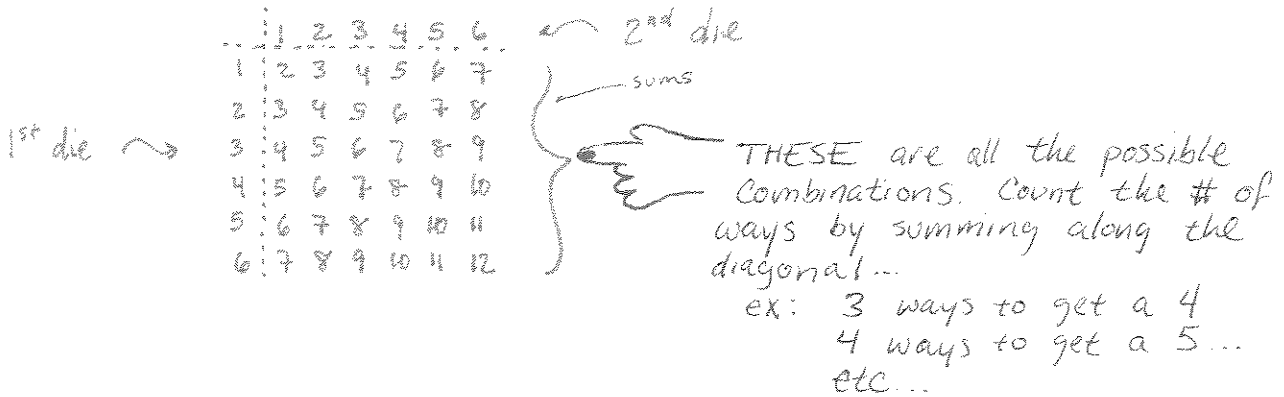 1 2 3 4 5 6 2nd die
1 2 3 4 5 6 7
sums
2 3 4 5 6 7 8
1st die 3 4 5 6 7 8 9
4 5 6 7 8 9 10
5 6 7 8 9 10 11
6 7 8 9 10 11 12
THESE are all the possible
Combinations. Count the # of
ways by summing along the
diagonal...
ex: 3 ways to get a 4
4 ways to get a 5...
etc...